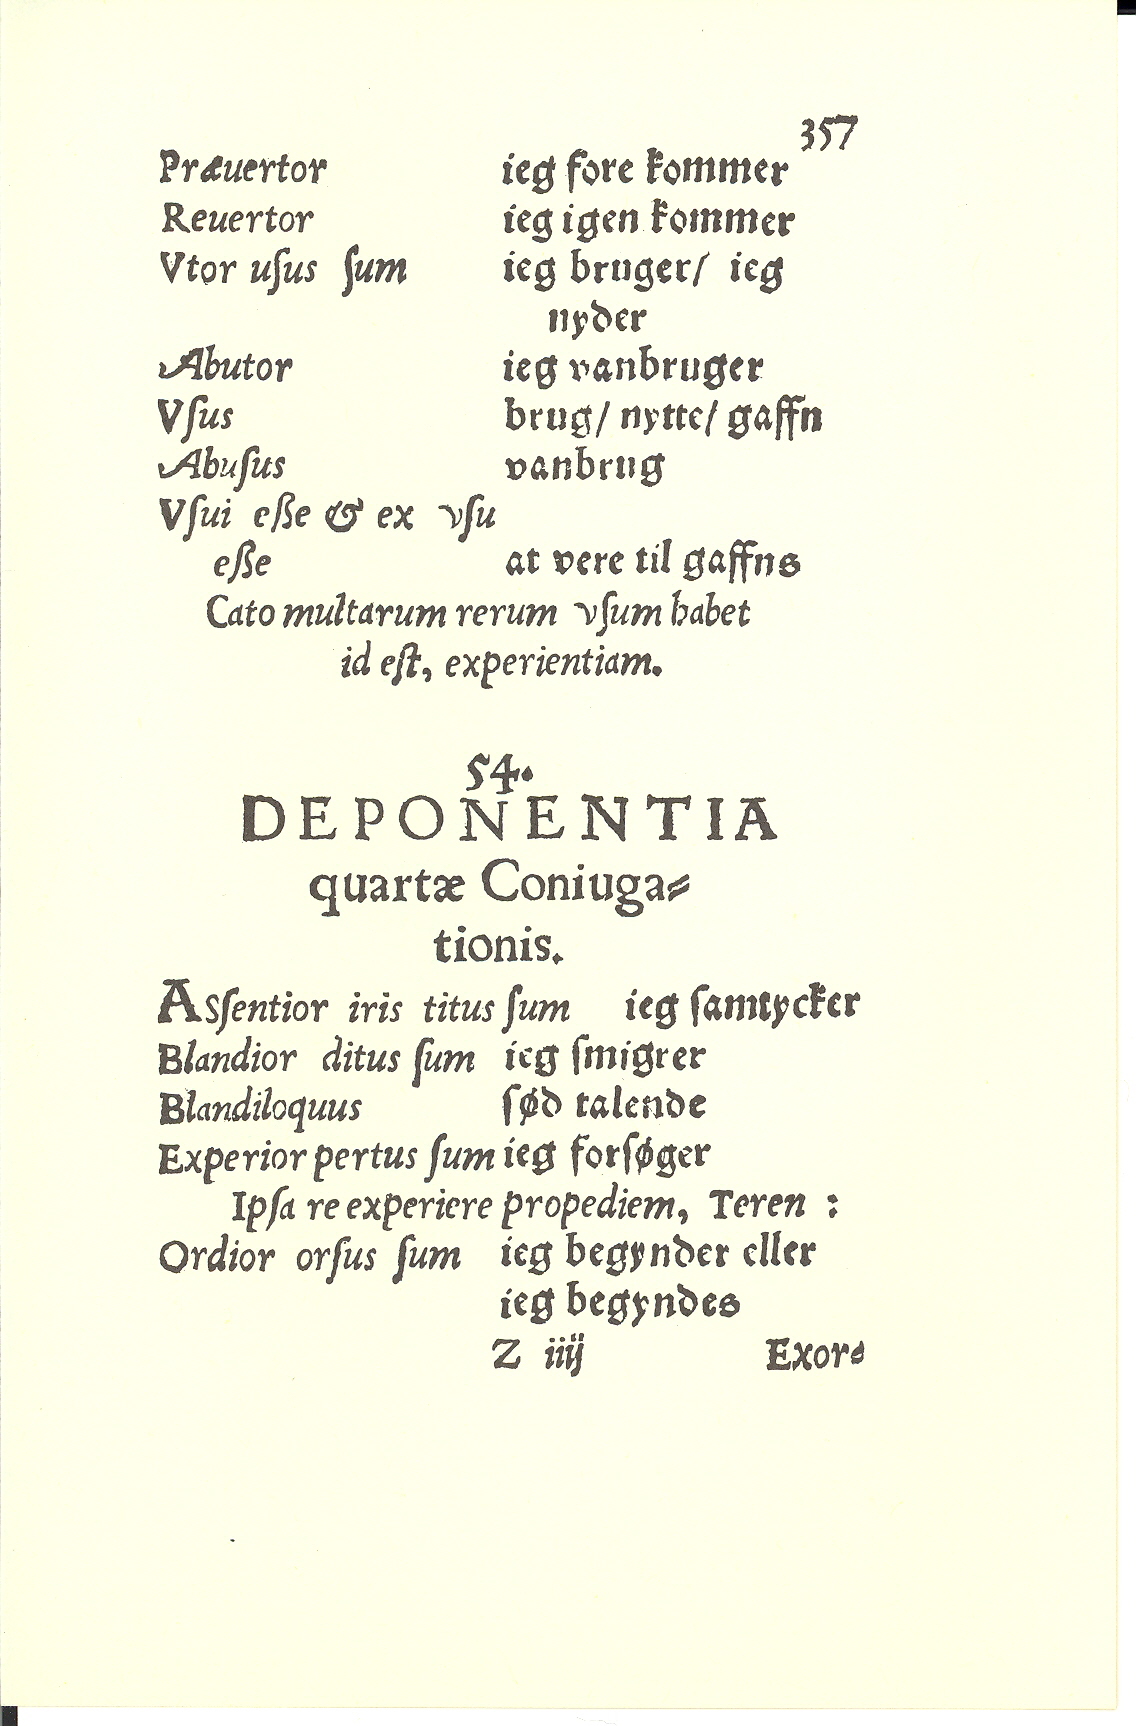 357
Præuertor ieg fore kommer
Reuertor ieg igen kommer
Vtor uſus ſum ieg bruger/ ieg
nyder
Abutor ieg vanbruger
Vſus brug/ nytte/ gaffn
Abuſus vanbrug
Vſui eſſe & ex vſu
eſſe at vere til gaffns
Cato multarum rerum vſum habet
id eſt, experientiam.
54.
DEPONENTIA
quartæ Coniuga⸗
tionis.
Asſentior iris titus ſum ieg ſamtycker
Blandior ditus ſum ieg ſmigrer
Blandiloquus ſød talende
Experior pertus ſum ieg forſøger
Ipſa re experiere propediem, Teren :
Ordior orſus ſum ieg begynder eller
ieg begyndes
Z iiij Exor⸗